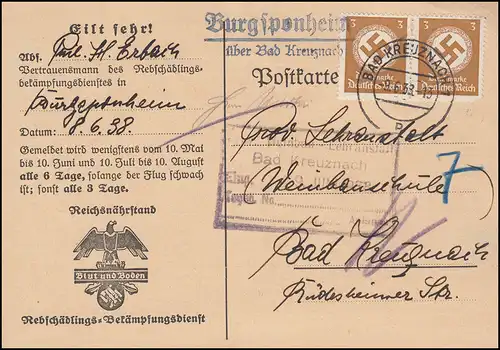 Eilt sehr!
Abs.
Vertrauensmann des Rebschädlings-
bekämpfungsdienstes in
Burgsponheim
Datum: 8.6.38.
Gemeldet wird wenigstens vom 10. Mai
bis 10. Juni und 10. Juli bis 10. August
alle 6 Tage, solange der Flug schwach
ist; sonst alle 3 Tage.
Reichsnährstand
Blut und Boden
Rebschädlings=Bekämpfungsdienst
Burgsponheim
über Bad Kreuznach
Postkarte
3 3 3 3
Deutsches Reich
BAD KREUZNACH
b
Prov. Lehranstalt
Weinbauschule
Bad Kreuznach
Rüdesheimer Str.
Lehranstalt
Bad Kreuznach
7